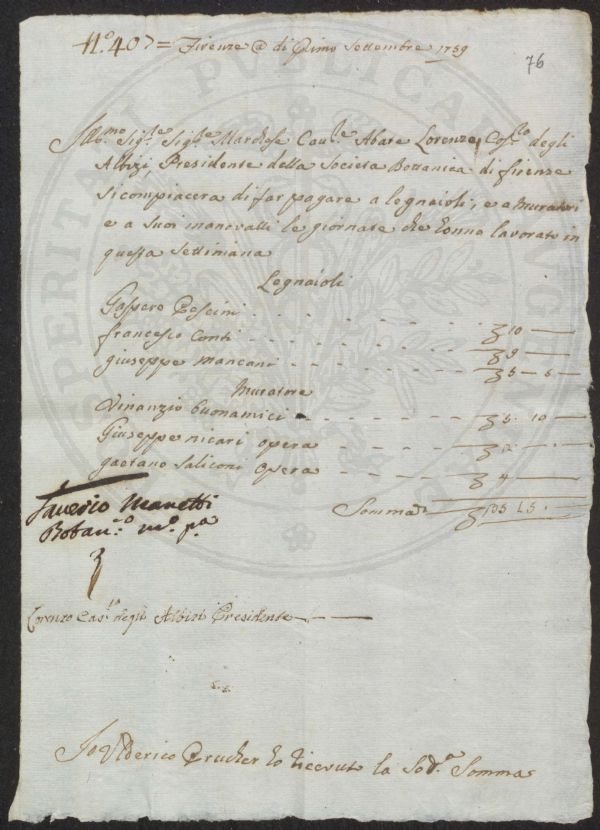 N.° 40 = Firenze @ di Primo Settembre 1759
76
Ill.mo Sig.re Sig.re Marchese Cau.re Abate Lorenzo degli
Albizi, Presidente della Societa Bottanica di firenze
si compiacera di far pagare a legnaioli, e a Muratori
e a suoi manovalli le giornate che hanno lavorato in
questa settimana
Legnaioli
Gaspero Pescini
francesco Conti 10
giuseppe mancani
Muratore
Vinanzio Buonamici 10
Giuseppe nicari opera 12
gaetano saliconi opera 4
Somma
Saverio Manetti
Botan.co m.o p.a
Lorenzo Cas.to degli Albizi Presidente
Io Uldérico Prucher ho riceuuto la Sod.a Somma